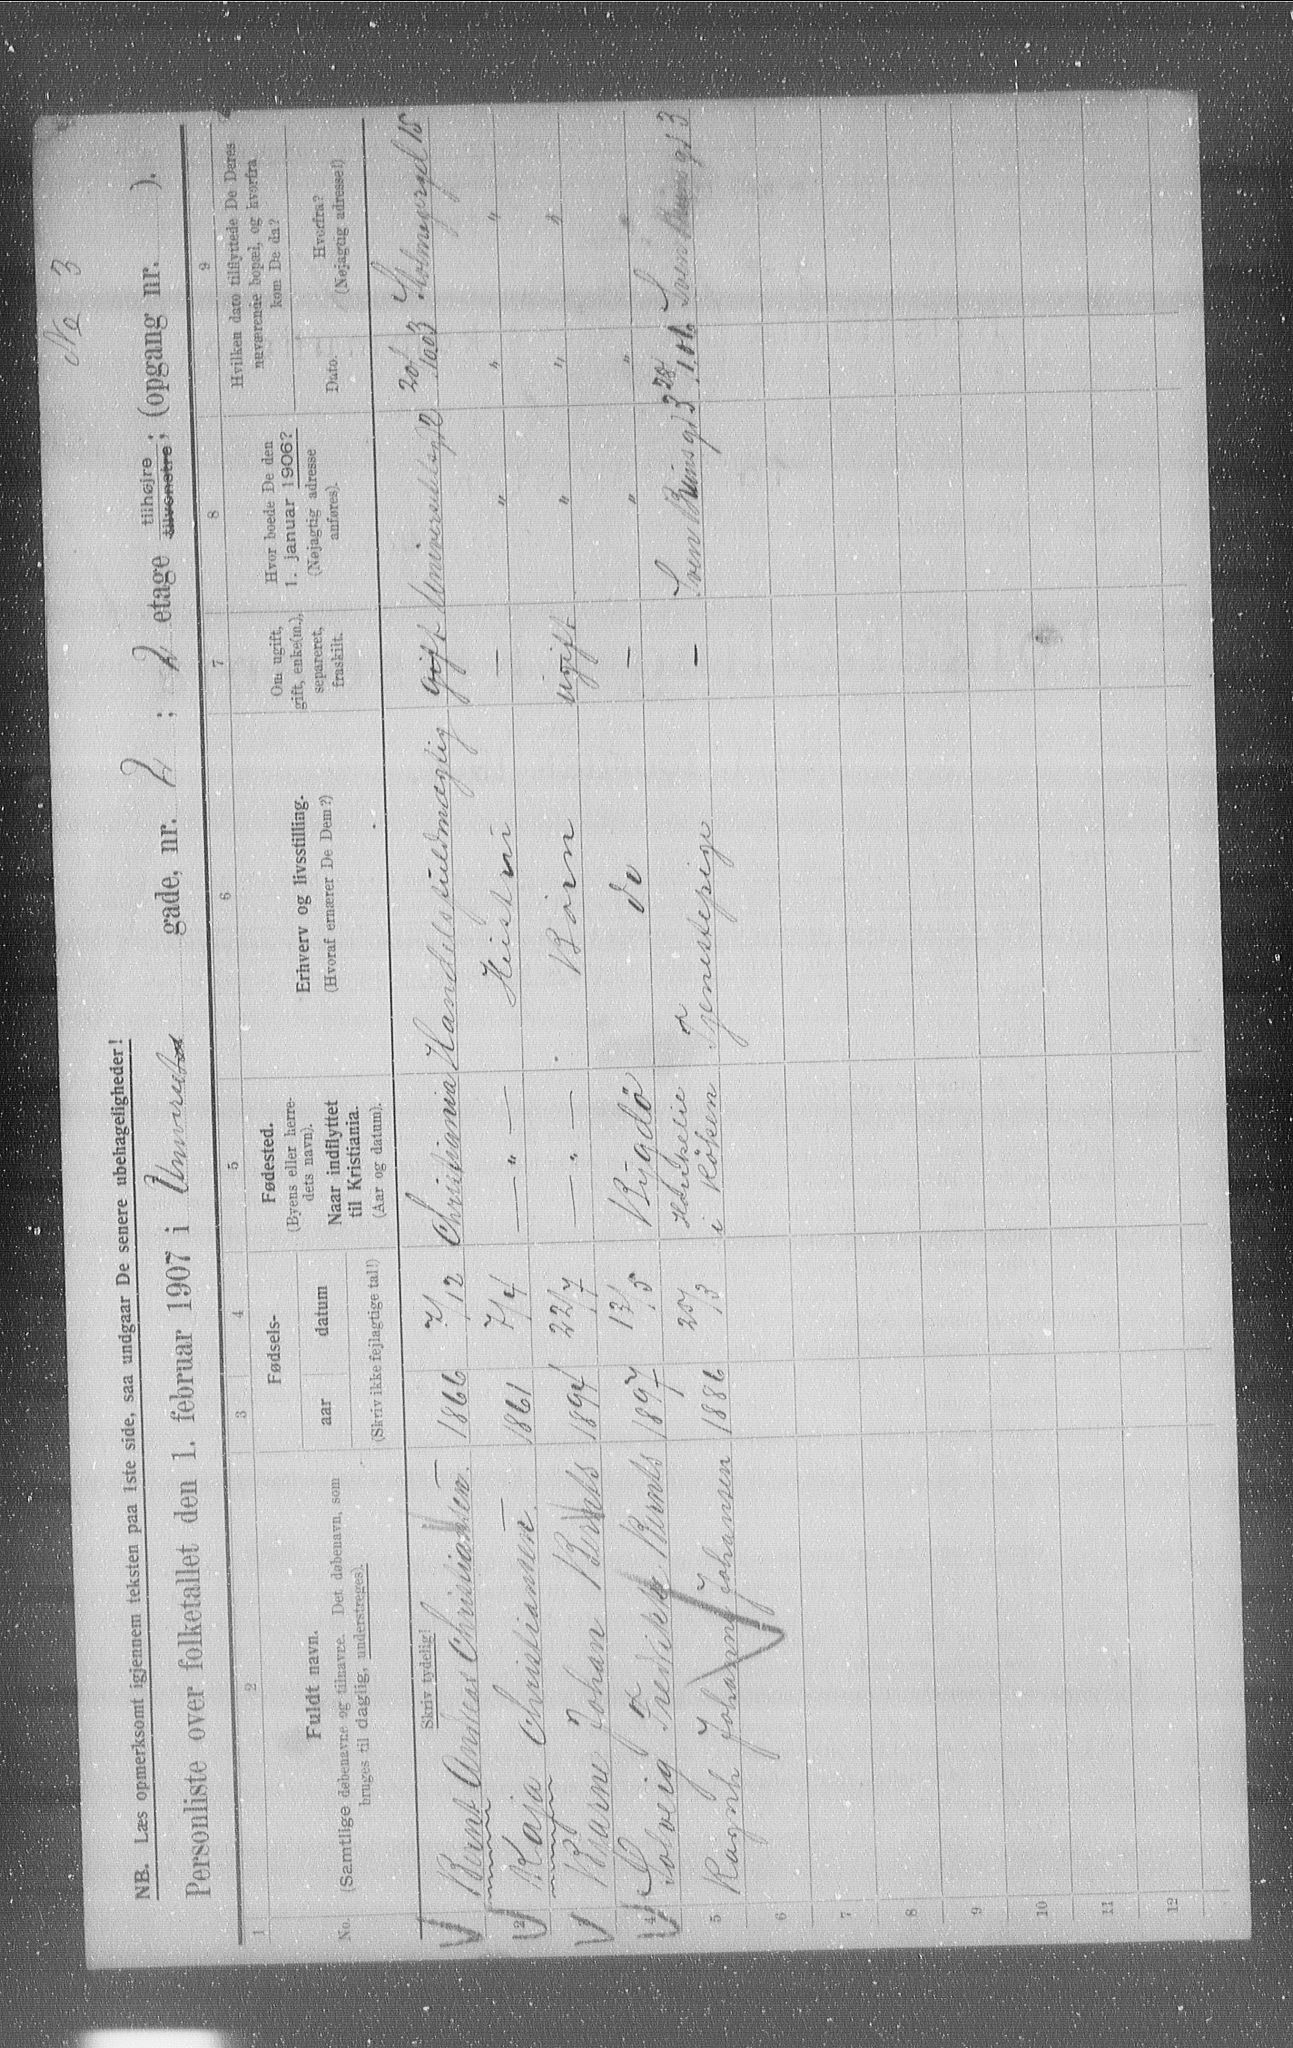 No 3
NB. Læs opmerksomt igjennem teksten paa 1ste side, saa undgaar De senere ubehageligheder!
Personliste over folketallet den 1. februar 1907 i Universitets gade, nr. 2; 2 etage tilhøjre; tilvenstre; (opgang nr. ).
1 2 3 4 5 6 7 8 9
No.
Fuldt navn.
(Samtlige døbenavne og tilnavne. Det døbenavn, som
bruges til daglig, understreges).
Fødsels-
aar datum
(Skriv ikke fejlagtige tal!)
Fødested.
(Byens eller herre-
dets navn).
Naar indflyttet
til Kristiania.
(Aar og datum).
Erhverv og livsstilling.
(Hvoraf ernærer De Dem?)
Om ugift,
gift, enke(m.),
separeret,
fraskilt.
Hvor boede De den
1. januar 1906?
(Nøjagtig adresse
anføres).
Hvilken dato tilflyttede De Deres
nuværende bopæl, og hvorfra
kom De da?
Dato.
Hvorfra?
(Nøjagtig adresse!)
Skriv tydelig!
Bernt Andreas Christiansen. 1866 7/12 Christiania Handelsfuldmægtig gift Universitetsgd 2 20/10 03 Holmensgd 15
2 Kaja Christiansen. 1861 7/4 — " — Hustru — " " "
Bjarne Johan Bernts 1894 22/7 — " — Barn ugift " " "
4 Solveig Fredikke Bernts 1897 13/5 Bygdö do — " " "
5 Ragnh Johanne Johansen 1886 25/3 i Röken Tjenestepige — Sven Bruns gd 3 28/1 06 Sven Bruns gd 3
6
7
8
9
10
11
12